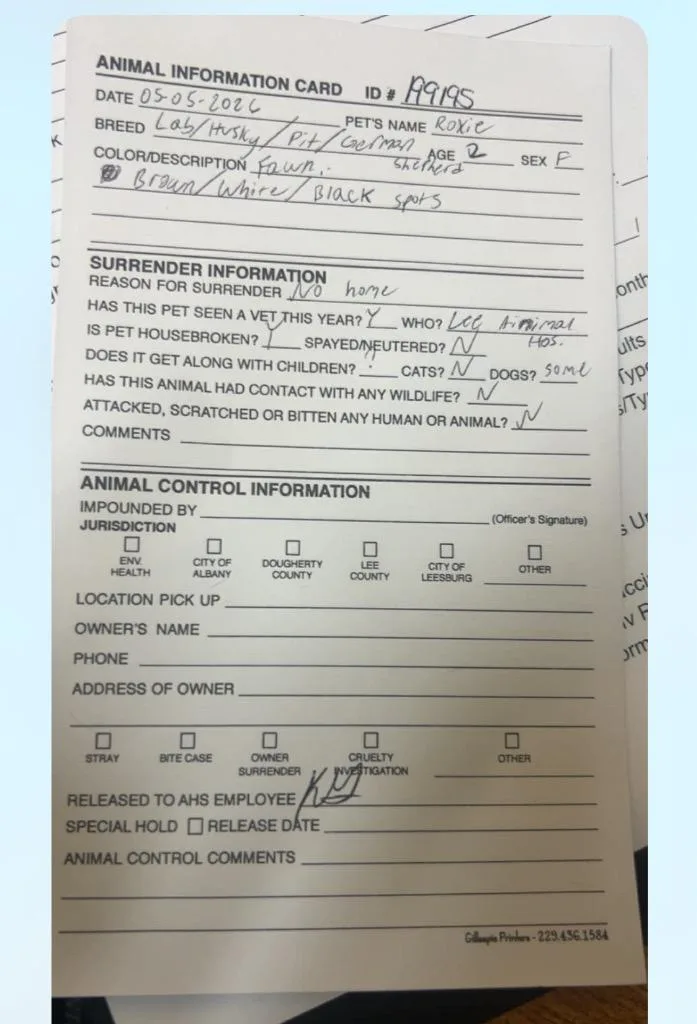 ANIMAL INFORMATION CARD ID # A9195
DATE 05-05-2026
PET'S NAME Roxie
BREED Lab/Husky/Pit/German Shepherd AGE 2 SEX F
COLOR/DESCRIPTION Fawn.
Brown/White/Black spots
SURRENDER INFORMATION
REASON FOR SURRENDER No home
HAS THIS PET SEEN A VET THIS YEAR? Y WHO? Lee Animal Hos.
IS PET HOUSEBROKEN? Y SPAYED/NEUTERED? N
DOES IT GET ALONG WITH CHILDREN? CATS? N DOGS? some
HAS THIS ANIMAL HAD CONTACT WITH ANY WILDLIFE? N
ATTACKED, SCRATCHED OR BITTEN ANY HUMAN OR ANIMAL? N
COMMENTS
ANIMAL CONTROL INFORMATION
IMPOUNDED BY (Officer's Signature)
JURISDICTION
ENV. HEALTH CITY OF ALBANY DOUGHERTY COUNTY LEE COUNTY CITY OF LEESBURG OTHER
LOCATION PICK UP
OWNER'S NAME
PHONE
ADDRESS OF OWNER
STRAY BITE CASE OWNER SURRENDER CRUELTY INVESTIGATION OTHER
RELEASED TO AHS EMPLOYEE
SPECIAL HOLD RELEASE DATE
ANIMAL CONTROL COMMENTS
Gillespie Printers - 229.436.1584